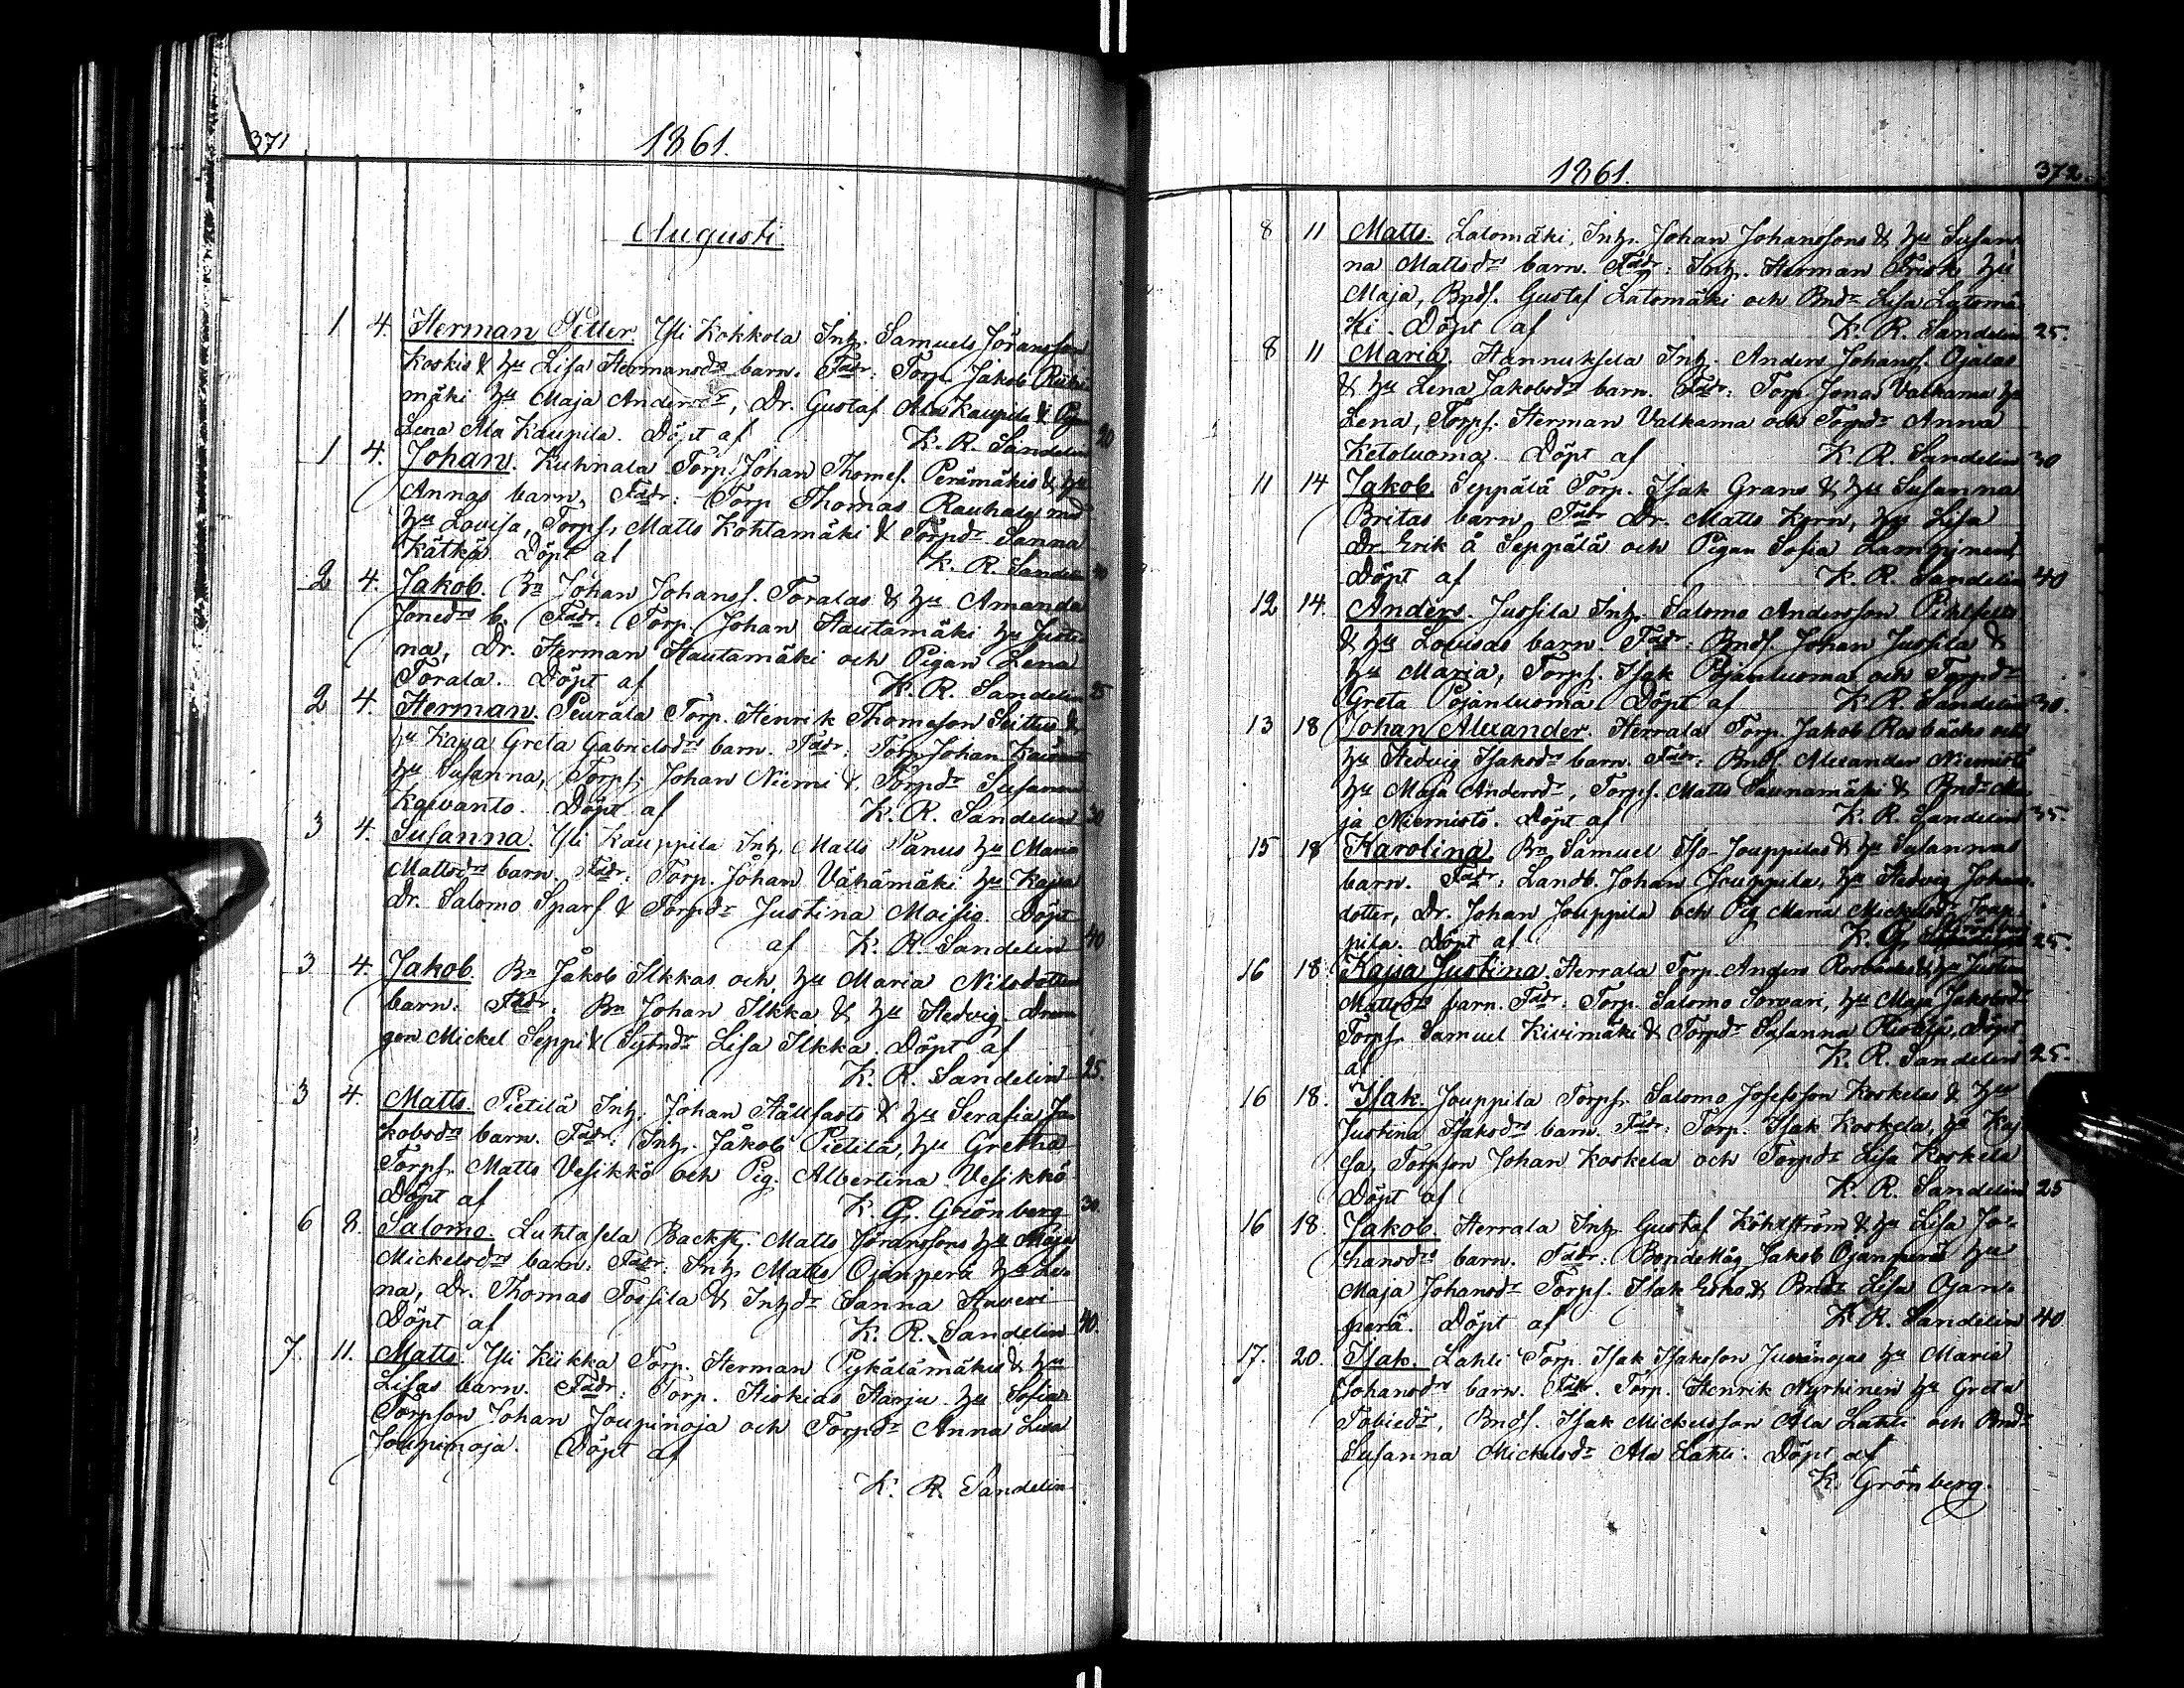 371
1861.
Augusti
1 4. Herman Petter. Yli Kokkola Inh. Samuels Jöransson
Koskis & hu Lisa Hermansdrs barn. Fadr: Torp. Jakob
mäki hu Maja Andersdr, Dr. Gustaf Ala Kaupila &
Lena Ala Kaupila. Döpt af K. R. Sandelin 20
1 4. Johan. Kuhnala Torp. Johan Thomes. Perämäkis & hu
Annas barn. Fadr: Torp Thomas Rauhala med
hu Lovisa, Torps. Matts Kohtamäki & Torpdr Sanna
Kätkä. Döpt af K. R. Sandelin
2 4. Jakob. Bn Johan Johanss. Toralas & hu Amanda
Jonedrs b. Fadr. Torp. Johan Hautamäki hu Justi-
na, Dr. Herman Hautamäki och Pigan Lena
Torala. Döpt af K. R. Sandelin 25
2 4. Herman. Peurala Torp. Henrik Thomason &
hu Kajsa Greta Gabrielsdrs barn. Fadr: Torp. Johan
hu Susanna, Torps. Johan Niemi & Torpdr Susanna
Kaivanto. Döpt af K. R. Sandelin 30
3 4. Susanna. Yli Kauppila Inh. Matts Panus hu Maria
Mattsdrs barn. Fadr: Torp. Johan Vähämäki hu Kajsa
Dr. Salomo Sparf & Torpdr Justina Moisio. Döpt
af K. R. Sandelin 40
3 4. Jakob. Bn Jakob Ilkkas och hu Maria Nilsdotters
barn. Fadr: Bn Johan Ilkka & hu Hedvig. Dren-
gen Mickel Seppi & Sytndr Lisa Ilkka. Döpt af
K. R. Sandelin 25.
3 4. Matts. Pietilä Inh. Johan Hållfasts & hu Serafia Ja-
kobsdrs barn. Fadr: Inh. Jakob Pietilä, hu Gretha
Torps. Matts Vesikkö och Pig. Albertina Vesikkö
Döpt af K. G. Grönberg 30.
6 8. Salomo. Luhtasela Backst. Matts Jöranssons hu Maja
Mickelsdrs barn. Fadr: Inh. Matts Ojanperä hu Le-
na, Dr. Thomas Tossila & Inhdr Sanna Haveri
Döpt af K. R. Sandelin 40.
7. 11. Matts. Yli Kiikka Torp. Herman Pykälämäkis & hu
Lisas barn. Fadr: Torp. Hiskias Harju hu Sofia
Torpson Johan Joupinoja och Torpdr Anna Lisa
Joupinoja. Döpt af
K. R. Sandelin
1861.
372.
8 11 Matts. Latomäki, Inh. Johan Johanssons & hu Susan-
na Mattsdrs barn. Fadr: Inh. Herman Frisk hu
Maja, Bnds. Gustaf Latomäki och Bndr Lisa Latomä-
ki. Döpt af K. R. Sandelin 25.
8 11 Maria. Hannuksela Inh. Anders Johanss. Ojalas
& hu Lena Jakobsdrs barn. Fadr: Torp. Jonas Valkama hu
Lena, Torps. Herman Valkama och Torpdr Anna
Ketoluoma. Döpt af K. R. Sandelin 30
11 14 Jakob. Seppälä Torp. Isak Grans & hu Susanna
Britas barn. Fadr Dr. Matts Korn, hu Lisa
Dr Erik å Seppälä och Pigan Sofia
Döpt af K. R. Sandelin 40
12 14. Anders. Jussila Inh. Salomo Andersson
& hu Lovisas barn. Fadr: Bnds. Johan Jussila &
hu Maria, Torps. Isak Pojanluoma och Torpdr
Greta Pojanluoma. Döpt af K. R. Sandelin 30.
13 18 Johan Alexander. Herrala Torp. Jakob Rosbacks och
hu Hedvig Isaksdrs barn. Fadr: Bnds. Alexander Niemistö
hu Maja Andersdr, Torps. Matts Saunamäki & Bndr Ma-
ja Niemistö. Döpt af K. R. Sandelin 35.
15 18 Karolina. Bn Samuel Iso-Jouppilas & hu Susannas
barn. Fadr: Landb. Johan Jouppila, hu Hedvig Johans-
dotter, Dr. Johan Jouppila och Pig Maria Mickelsdr Joup-
pila. Döpt af K. G. 25.
16 18. Kajsa Justina. Herrala Torp. Anders Rosbacks & hu Justina
Mattsdrs barn. Fadr: Torp. Salomo Sorvari, hu Maja Jakobsdr
Torps. Samuel Kivimäki & Torpdr Susanna Döpt
af K. R. Sandelin 25.
16 18. Isak. Jouppila Torps. Salomo Josefsson Koskelas & hu
Justina Isaksdrs barn. Fadr: Torp. Isak Koskela, hu Kaj-
sa, Torpson Johan Koskela och Torpdr Lisa Koskela
Döpt af K. R. Sandelin 25
16 18. Jakob. Herrala Inh. Gustaf Köhlström & hu Lisa Jo-
hansdrs barn. Fadr: Jakob Ojanperä hu
Maja Johansdr Torps. Isak & Bndr Lisa Ojan-
perä. Döpt af K. R. Sandelin 40
17. 20. Isak. Lahti Torp. Isak Isaksson hu Maria
Johansdrs barn. Fadr. Torp. Henrik Nyrhinen hu Greta
Tobiedr, Bnds. Isak Mickelsson Ala Lahti och Bndr
Susanna Mickelsdr Ala Lahti. Döpt af
K. Grönberg.